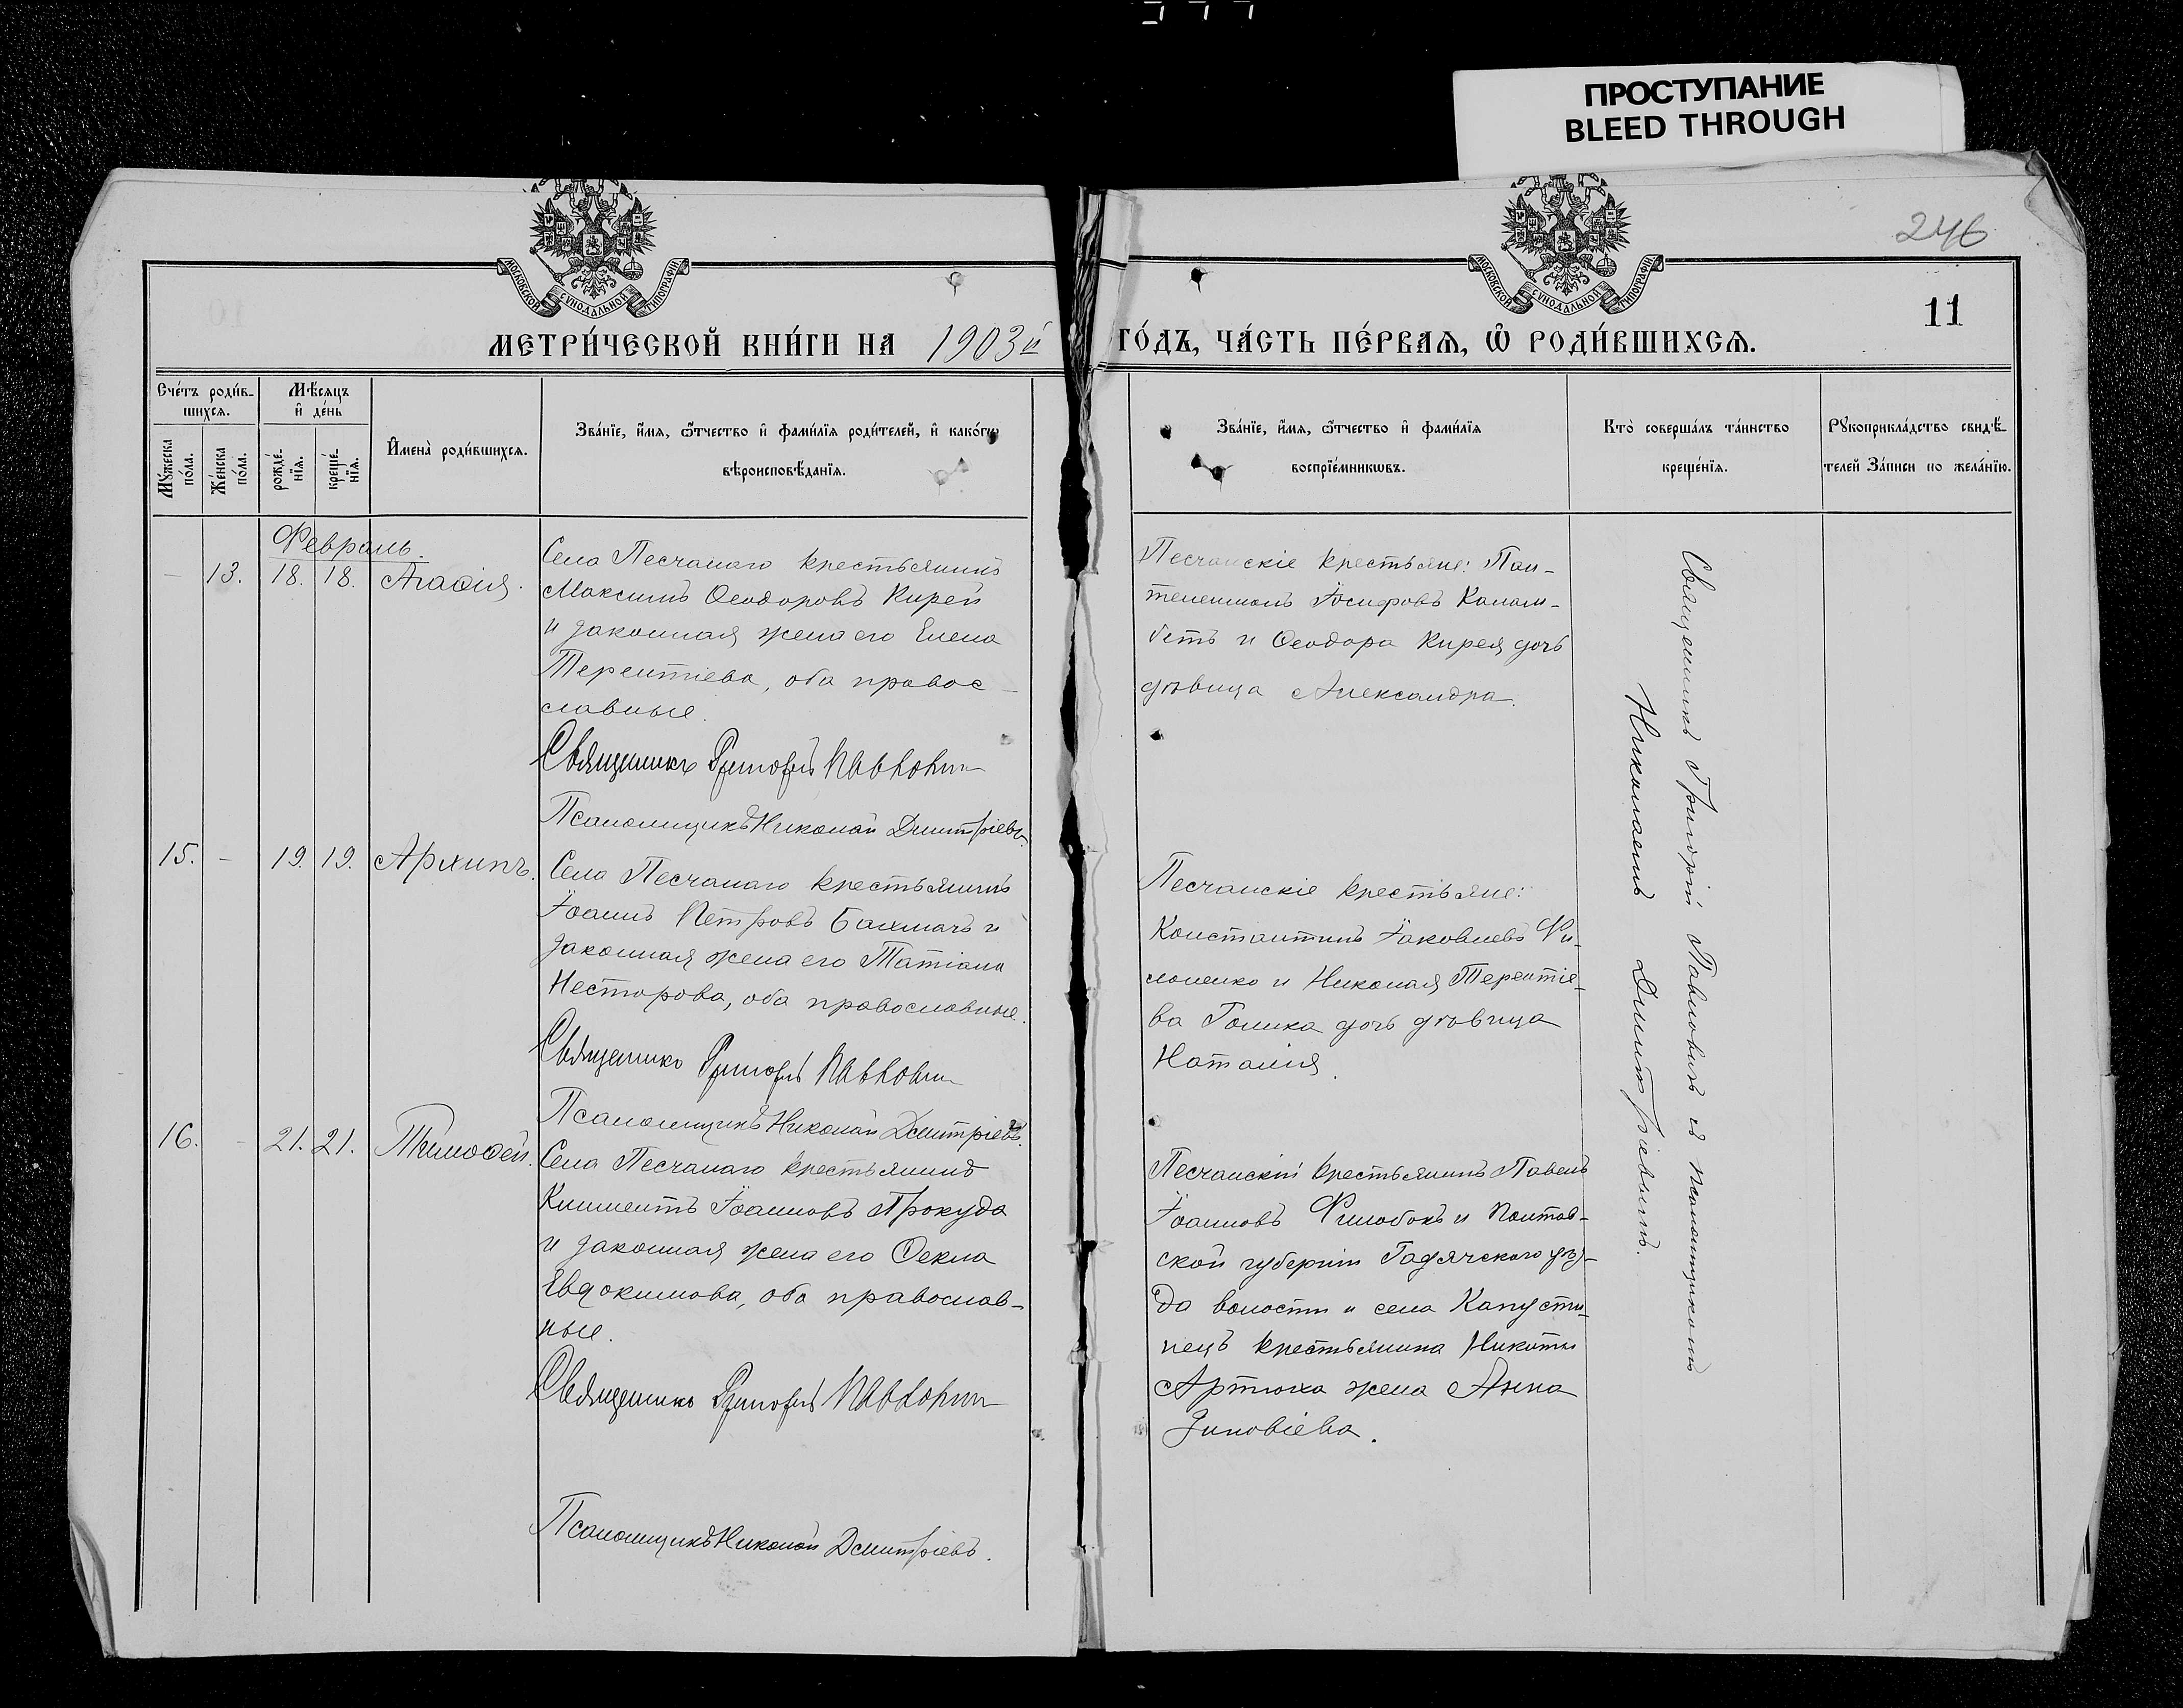 ПРОСТУПАНИЕ
BLEED THROUGH
246
11
МОСКОВСКОЙ СѴНОДАЛЬНОЙ ТИПОГРАФІИ
МОСКОВСКОЙ СѴНОДАЛЬНОЙ ТИПОГРАФІИ
МЕТРИ́ЧЕСКОЙ КНИ́ГИ НА 1903й ГО́ДЪ, ЧА́СТЬ ПЕ́РВАѦ, Ѡ РОДИ́ВШИХСѦ.
Сче́тъ роди́в-
шихсѧ.
Мꙋ́жеска
по́ла.
Же́нска
по́ла.
Мѣ́сяцъ
и҆ де́нь
рожде́-
нїѧ.
креще́-
нїѧ.
И҆мена̀ роди́вшихсѧ.
Зва́нїе, и҆́мѧ, ѻ҆́тчество и҆ фами́лїѧ роди́телей, и҆ како́гѡ
вѣроисповѣ́данїѧ.
Зва́нїе, и҆́мѧ, ѻ҆́тчество и҆ фами́лїѧ
воспрїе́мникѡвъ.
Кто̀ соверша́лъ та́инство
креще́нїѧ.
Рꙋкоприкла́дство свидѣ́-
телей За́писи по жела́нїю.
Февраль.
— 13. 18. 18. Агаѳія.
Села Песчанаго крестьянинъ
Максимъ Ѳеодоровъ Кирей
и законная жена его Елена
Терентіева, оба правос-
славные.
Священникъ Григорій Павловичъ
Псаломщикъ Николай Дмитріевъ.
Песчанскіе крестьяне: Пан-
телеимонъ Іосифовъ Калам-
бетъ и Ѳеодора Кирея дочь
дѣвица Александра.
15. — 19. 19. Архипъ.
Села Песчанаго крестьянинъ
Іоаннъ Петровъ Бахмачъ и
законная жена его Татіана
Несторова, оба православные.
Священникъ Григорій Павловичъ
Псаломщикъ Николай Дмитріевъ.
Песчанскіе крестьяне:
Константинъ Іаковлевъ Фи-
лоненко и Николая Терентіе-
ва Голика дочь дѣвица
Наталія.
16. — 21. 21. Тимоѳей.
Села Песчанаго крестьянинъ
Климентъ Іоанновъ Прокуда
и законная жена его Ѳекла
Евдокимова, оба православ-
ные.
Священникъ Григорій Павловичъ
Псаломщикъ Николай Дмитріевъ.
Песчанскій крестьянинъ Павелъ
Іоанновъ Филобокъ и Полтав-
ской губерніи Гадячского уѣз-
да волости и села Капусти-
нецъ крестьянина Никиты
Артюха жена Анна
Зиновіева.
Священникъ Григорій Павловичъ съ псаломщикомъ
Николаемъ Дмитріевымъ.